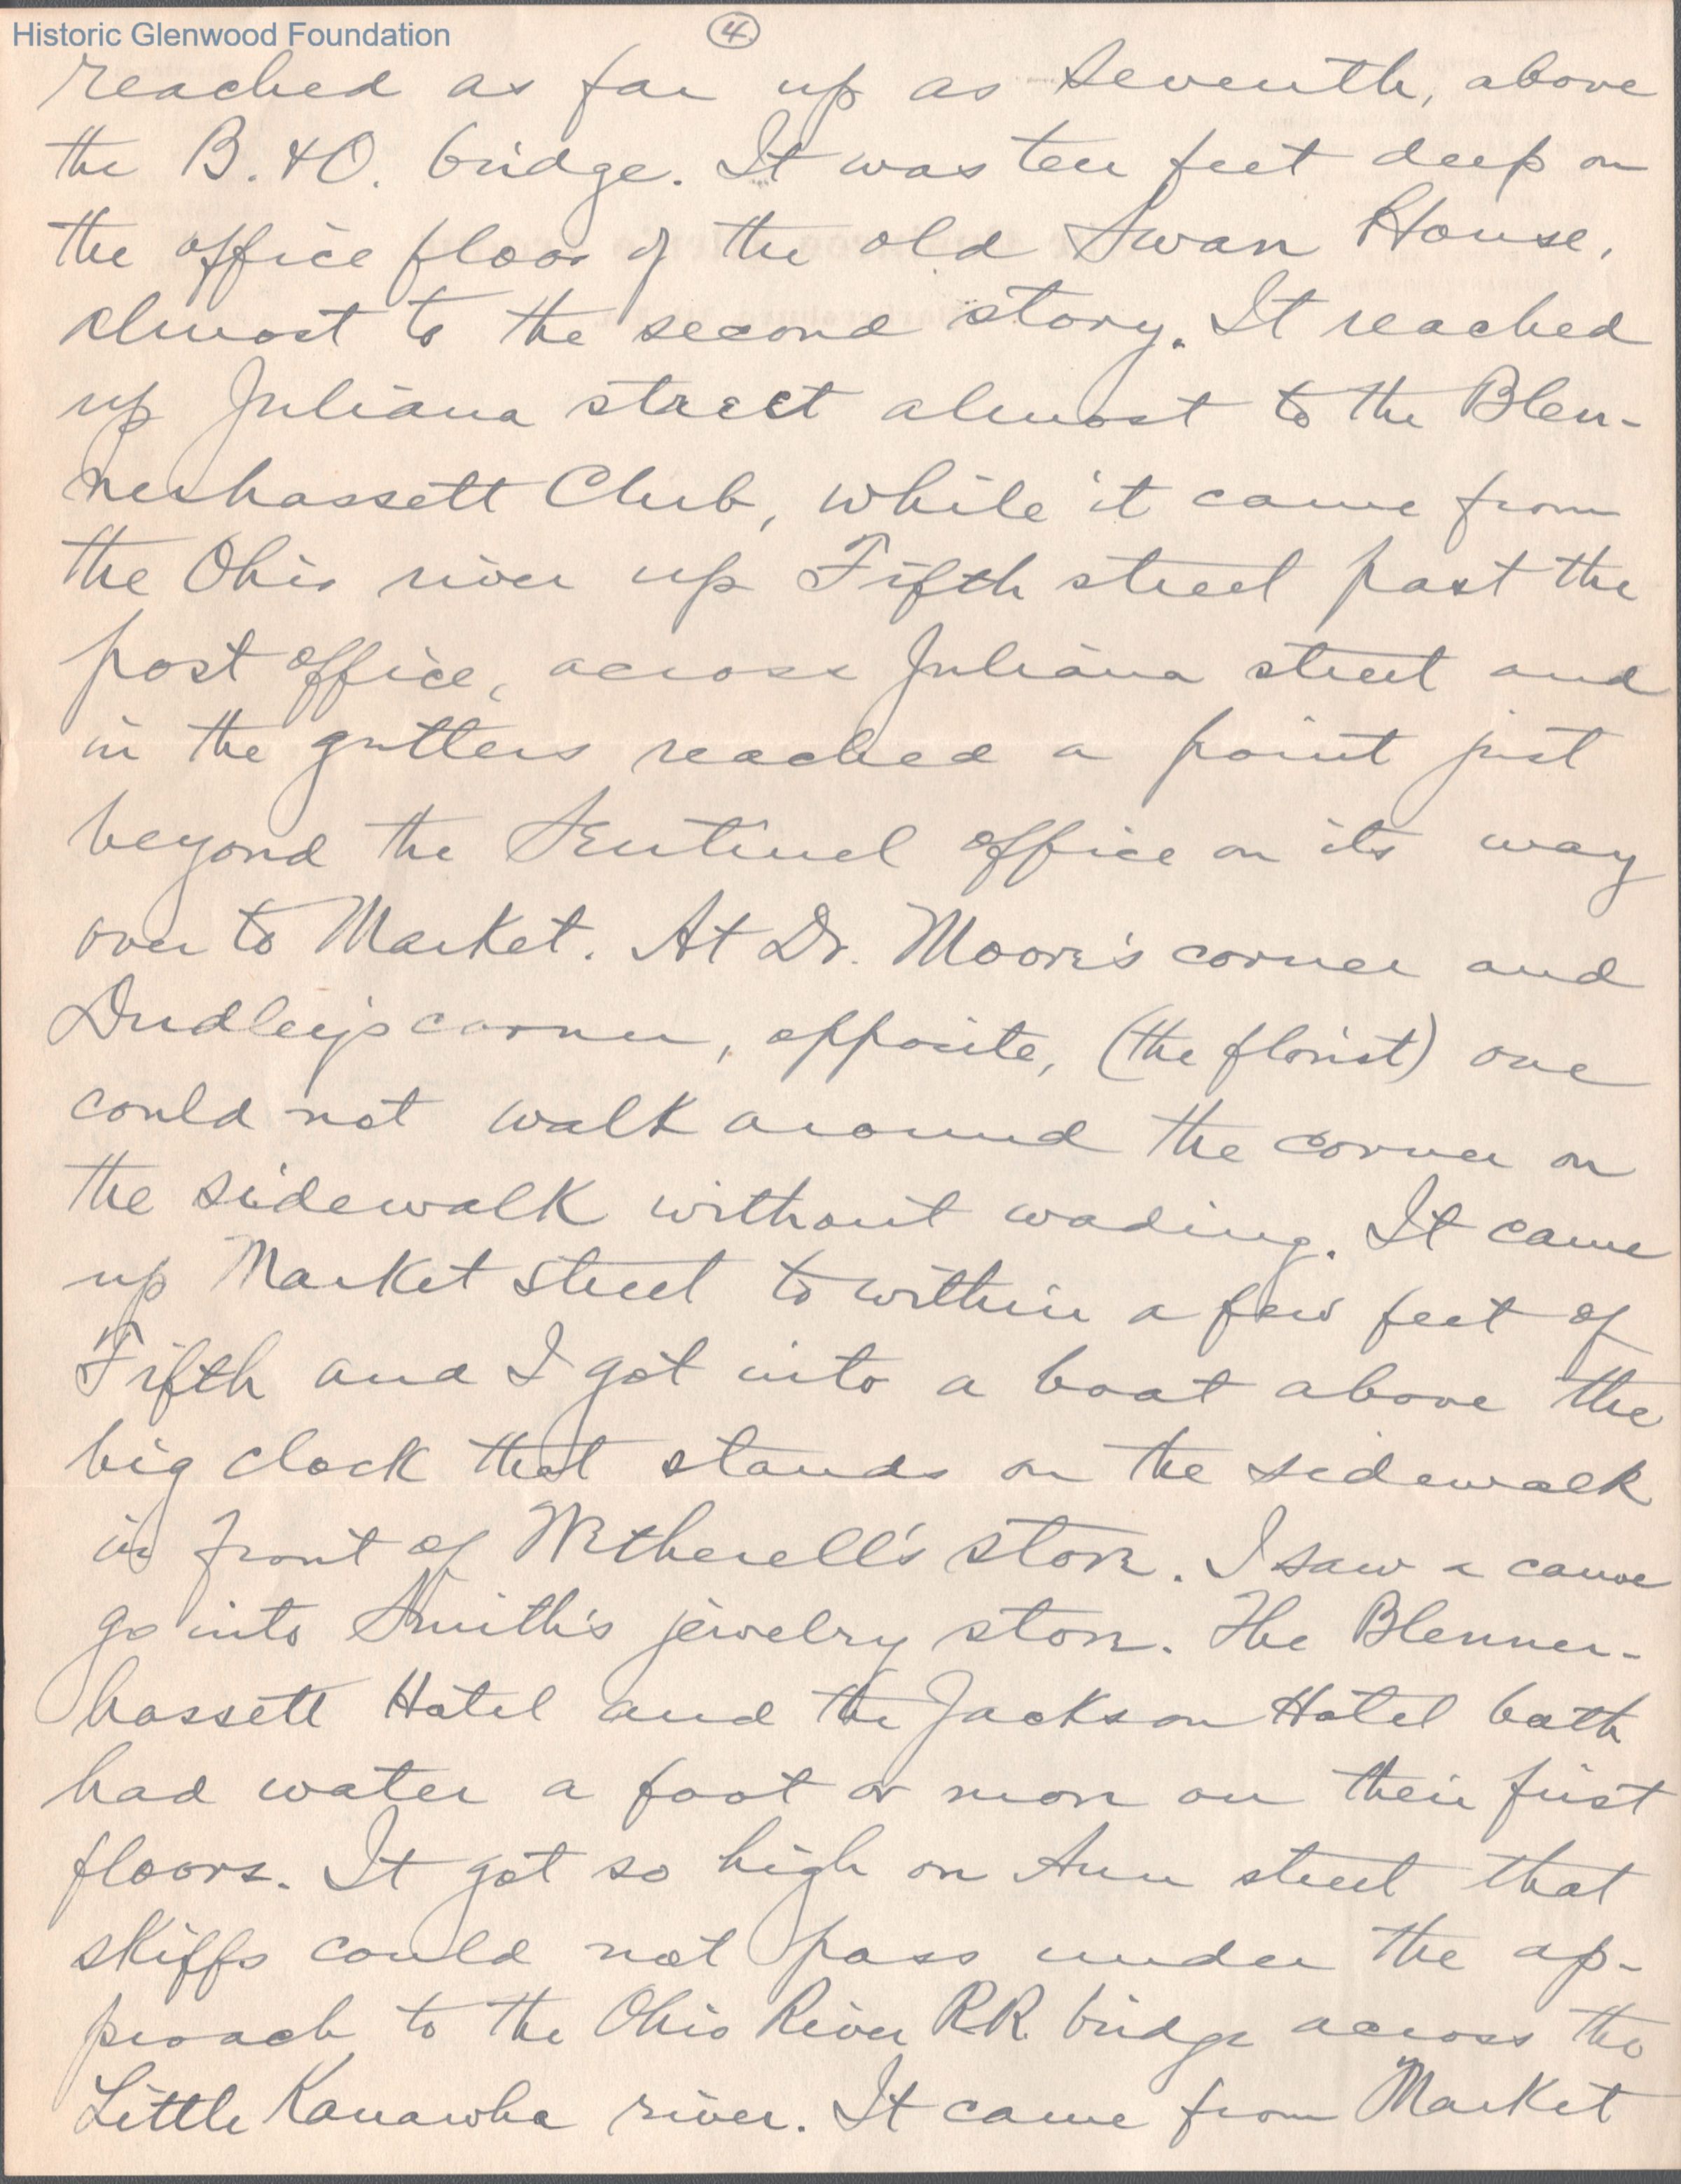 Historic Glenwood Foundation
4
reached as far up as Seventh, above
the B. & O. bridge. It was ten feet deep on
the office floor of the old Swan House,
almost to the second story. It reached
up Juliana street almost to the Blen-
nerhassett Club, while it came from
the Ohio river up Fifth street past the
post office, across Juliana street and
in the gutters reached a point just
beyond the Sentinel office on its way
over to Market. At Dr. Moore's corner and
Dudley's corner, opposite, (the florist) one
could not walk around the corner on
the sidewalk without wading. It came
up Market street to within a few feet of
Fifth and I got into a boat above the
big clock that stands on the sidewalk
in front of Wetherell's store. I saw a canoe
go into Smith's jewelry store. The Blenner-
hassett Hotel and the Jackson Hotel both
had water a foot or more on their first
floors. It got so high on Ann street that
skiffs could not pass under the ap-
proach to the Ohio River RR. bridge across the
Little Kanawha river. It came from Market